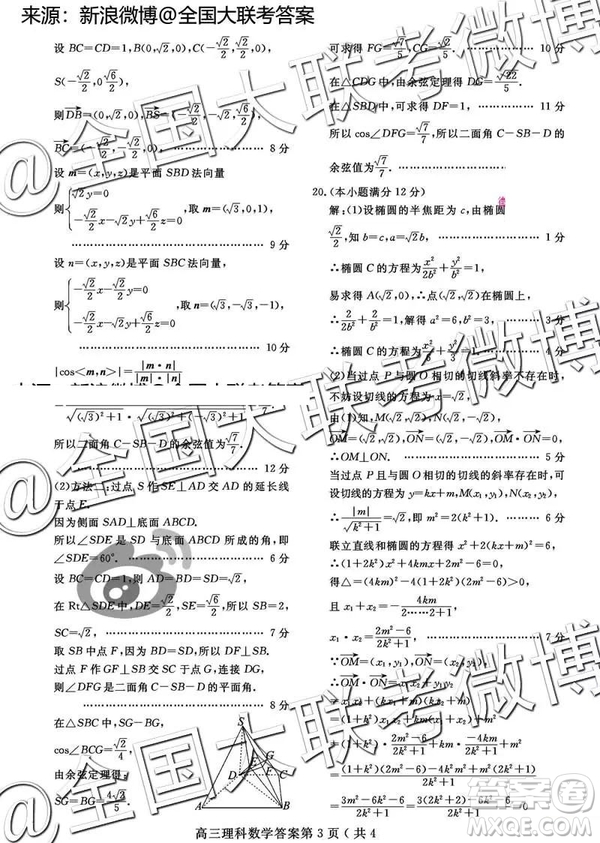 来源：新浪微博@全国大联考答案
设 BC=CD=1,B(0,√2,0),C(-√2/2,√2/2,0),
S(-√2/2,0,√6/2),
8 分
设 m=(x,y,z)是平面 SBD 法向量
取 m=(√3,0,1),
9 分
设 n=(x,y,z)是平面 SBC 法向量,
取 n=(√3,-√3,-1),
10 分
|cos<m,n>|=|m·n|/|m|·|n|
所以二面角 C-SB-D 的余弦值为√7/7.
12 分
(2)方法二:过点 S 作 SE⊥AD 交 AD 的延长
线于点 E.
因为侧面 SAD⊥底面 ABCD.
所以∠SDE 是 SD 与底面 ABCD 所成的角,即
∠SDE=60°. 6 分
设 BC=CD=1,则 AD=BD=SD=√2,
在 Rt△SDE 中,DE=√2/2,SE=√6/2,所以 SB=2,
SC=√2, 7 分
取 SB 中点 F,因为 BD=SD,所以 DF⊥SB.
过点 F 作 GF⊥SB 交 SC 于 G,连接 DG,
则∠DFG 是二面角 C-SB-D 的平面角.
8 分
在△SBC 中,SG=BG,
cos∠BCG=√2/4,
由余弦定理得
SG=BG=4√2/5.
S
D
C
A
B
可求得 FG=√7/5,CG= 10 分
在△CDG 中,由余弦定理得 DG=√22/5.
在△SBD 中,可求得 DF=1, 11 分
所以 cos∠DFG=√7/7,所以二面角 C-SB-D 的
余弦值为√7/7.
20.(本小题满分 12 分)
解:(1)设椭圆的半焦距为 c,由椭圆
√2/2,知 b=c,a=√2b, 1 分
∴椭圆 C 的方程为x²/2b²+y²/b²=1,
易求得 A(√2,0),∴点(√2,√2)在椭圆上,
∴2/2b²+2/b²=1,解得 a²=6,b²=3, 3 分
∴椭圆 C 的方程为x²/6+y²/3=1. 4 分
(2)当过点 P 与圆 O 相切的切线斜率不存在时,
不妨设切线的方程为 x=√2,
由(1)知,M(√2,√2),N(√2,-√2),
OM=(√2,√2),ON=(√2,-√2),OM·ON=0,
∴OM⊥ON. 5 分
当过点 P 且与圆 O 相切的切线的斜率存在时,可
设切线的方程为 y=kx+m,M(x₁,y₁),N(x₂,y₂),
∴|m|/√(k²+1)=√2,即 m²=2(k²+1). 6 分
联立直线和椭圆的方程得 x²+2(kx+m)²=6,
∴(1+2k²)x²+4kmx+2m²-6=0,
得△=(4km)²-4(1+2k²)(2m²-6)>0,
且 x₁+x₂=-4km/2……2+1,
x₁·x₂=2m²-6/2k²+1, 7 分
∵OM=(x₁,y₁),ON=(x₂,y₂),
∴OM·ON=x₁x₂+y₁y₂=x₁x₂+(kx₁+m)(kx₂+m)
=(1+k²)x₁x₂+km(x₁+x₂)+m²
=(1+k²)·2m²-6/2k²+1+km·-4km/2k²+1+m²
=(1+k²)(2m²-6)-4k²m²+m²(2k²+1)/2k²+1
=3m²-6k²-6/2k²+1=3(2k²+2)-6k²-6/2k²+1=0
高三理科数学答案第 3 页（共 4
@全国大联考微博